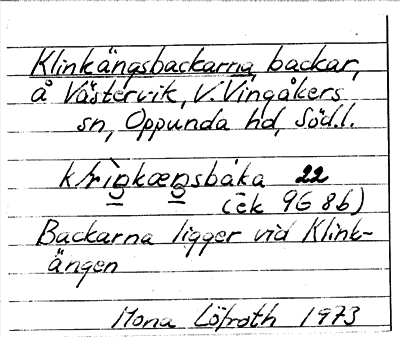 Klinkängsbackarna backar,
å Västervik, V. Vingåkers
sn, Oppunda hd, Söd.l.
22
(ek 9G 8b)
Backarna ligger vid Klink-
ängen
Mona Löfroth 1973